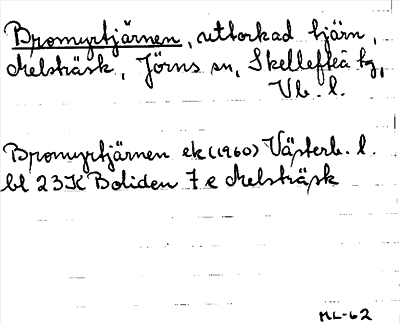 Bromyrtjärnen, uttorkad tjärn,
Melsträsk, Jörns sn, Skellefteå kg,
Vb. l.
Bromyrtjärnen ek (1960) Västerb. l.
bl 23K Boliden 7 e Melsträsk
ML-62